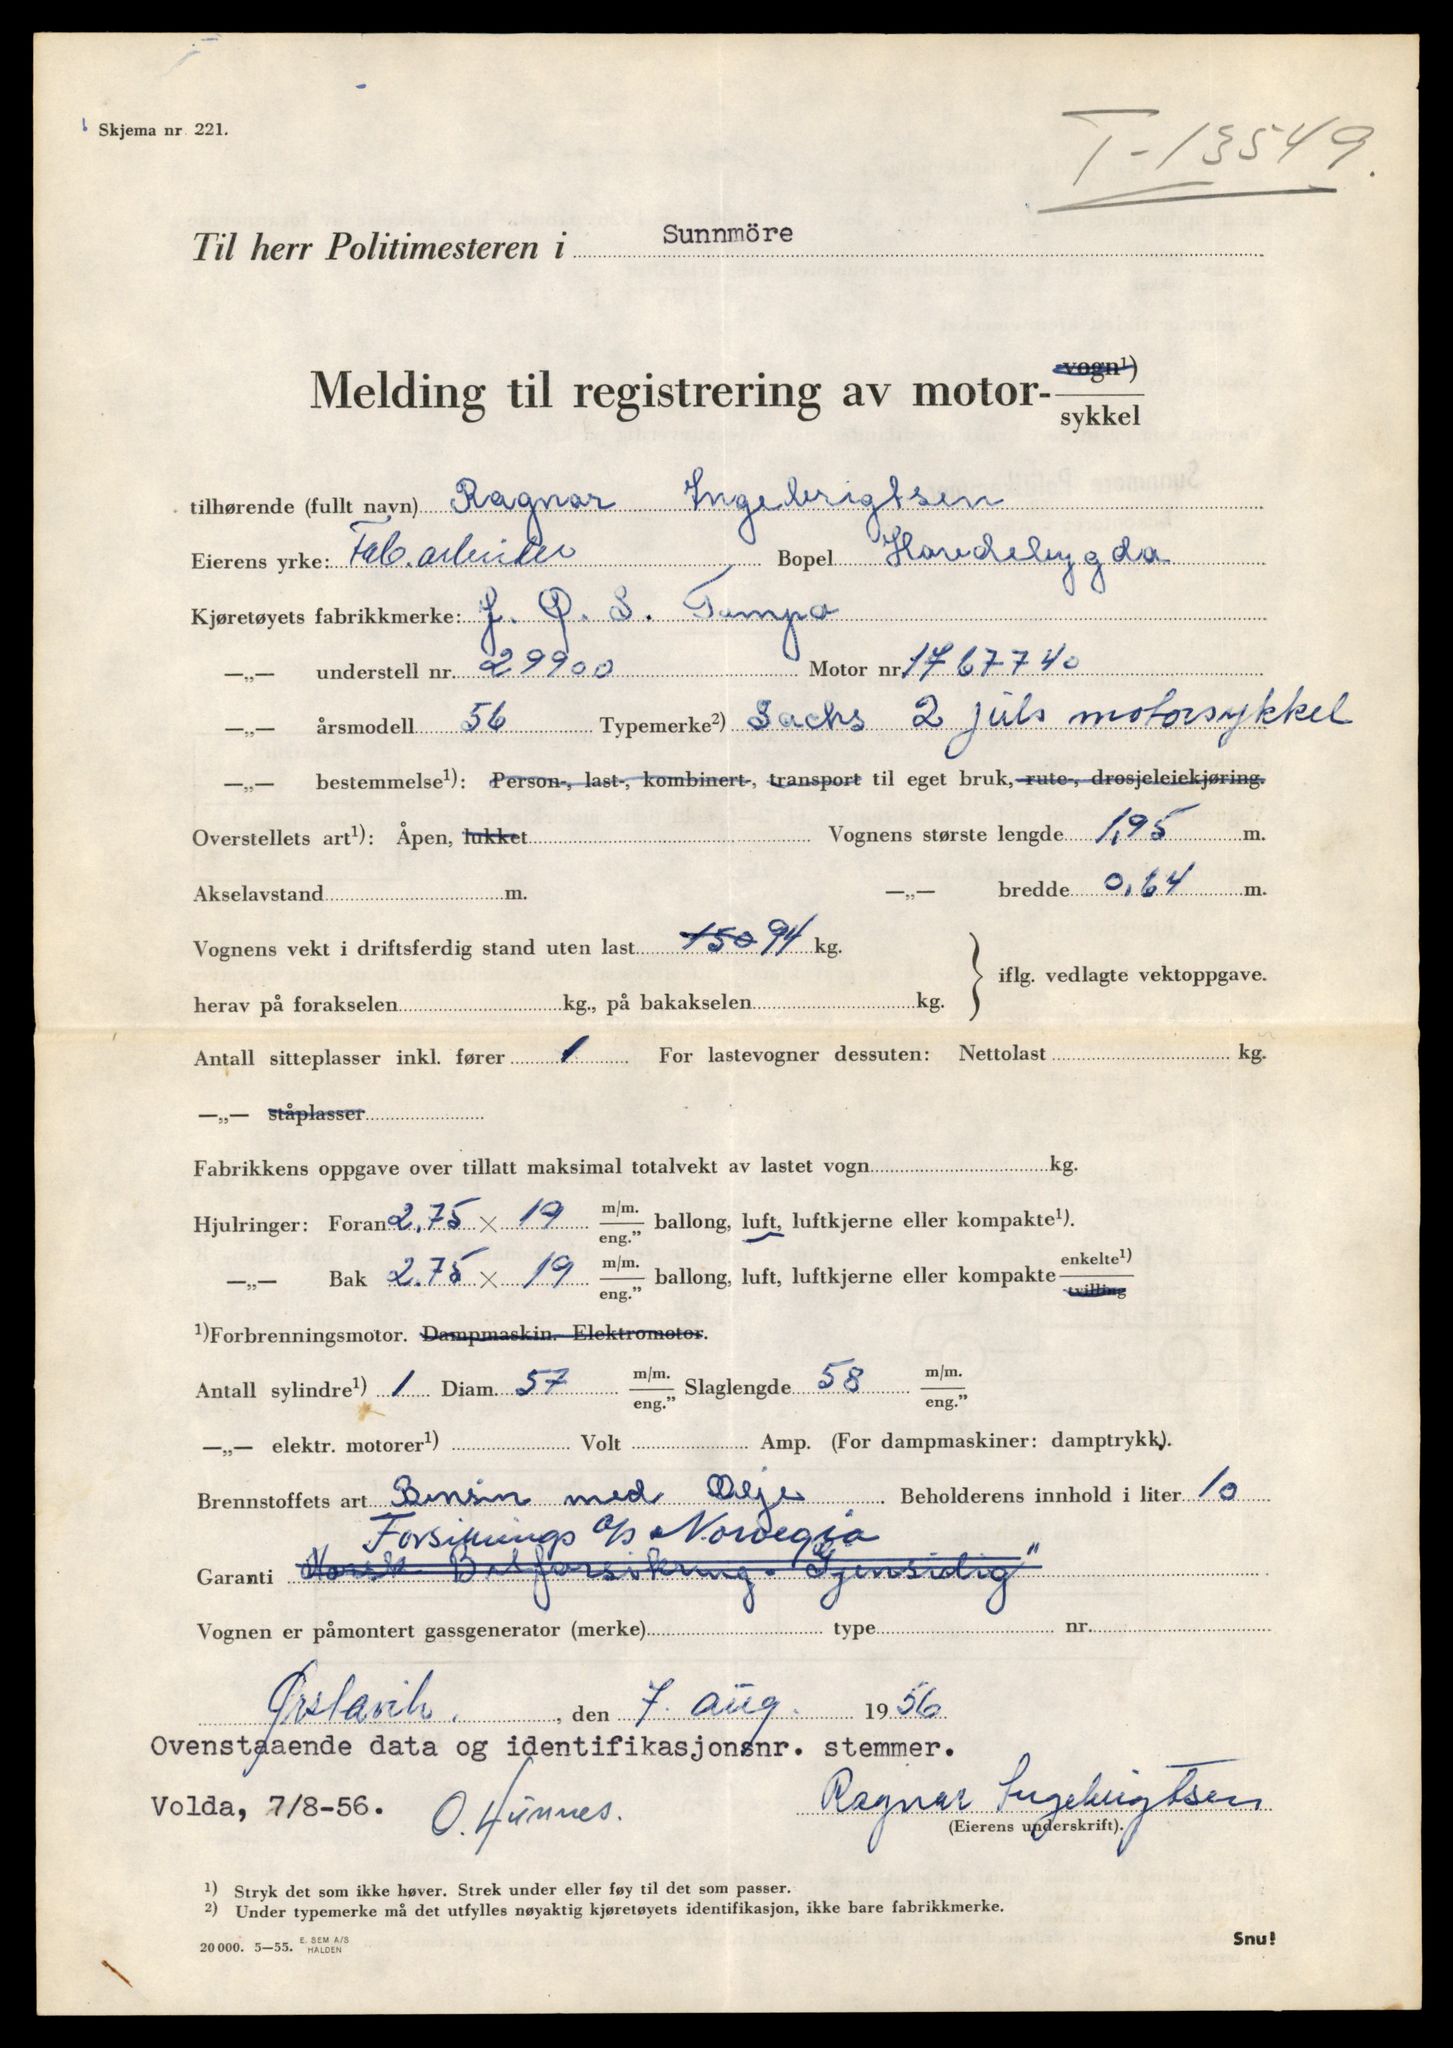 Skjema nr. 221.
T-13549.
Til herr Politimesteren i Sunnmöre
Melding til registrering av motor-vogn¹)
sykkel
tilhørende (fullt navn) Ragnar Ingebrigtsen
Eierens yrke: Fab.arbeider Bopel Haredebygda
Kjøretøyets fabrikkmerke: J. Ø. S. Tempo
—„— understell nr. 29900 Motor nr 1767740
—„— årsmodell 56 Typemerke²) Sachs 2 juls motorsykkel
—„— bestemmelse¹): Person-, last-, kombinert-, transport til eget bruk, rute-, drosjeleiekjøring.
Overstellets art¹): Åpen, lukket Vognens største lengde 1,95 m.
Akselavstand m. —„— bredde 0,64 m.
Vognens vekt i driftsferdig stand uten last 150 94 kg.
iflg. vedlagte vektoppgave.
herav på forakselen kg., på bakakselen kg.
Antall sitteplasser inkl. fører 1 For lastevogner dessuten: Nettolast kg.
—„— ståplasser
Fabrikkens oppgave over tillatt maksimal totalvekt av lastet vogn kg.
Hjulringer: Foran 2.75 × 19 m/m. eng.” ballong, luft, luftkjerne eller kompakte¹).
—„— Bak 2.75 × 19 m/m. eng.” ballong, luft, luftkjerne eller kompakte enkelte¹) tvilling
¹)Forbrenningsmotor. Dampmaskin. Elektromotor.
Antall sylindre¹) 1 Diam. 57 m/m. eng.” Slaglengde 58 m/m. eng.”
—„— elektr. motorer¹) Volt Amp. (For dampmaskiner: damptrykk).
Brennstoffets art Bensin med Olje Beholderens innhold i liter 10
Forsikrings a/s Norvegia
Garanti Norsk Bilforsikring. Gjensidig"
Vognen er påmontert gassgenerator (merke) type nr.
Ørstavik, den 7. aug. 1956
Ovenstaaende data og identifikasjonsnr. stemmer.
Volda, 7/8-56. O. Hunnes. Ragnar Ingebrigtsen
(Eierens underskrift).
¹) Stryk det som ikke høver. Strek under eller føy til det som passer.
²) Under typemerke må det utfylles nøyaktig kjøretøyets identifikasjon, ikke bare fabrikkmerke.
20000. 5—55. E. SEM A/S HALDEN
Snu!